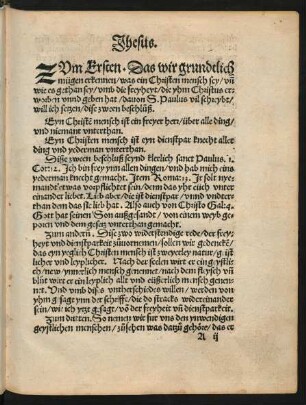 Jhesus.
ZUm Ersten. Das wir grundtlich
mügen erkennen/was ein Christen mensch sey/vñ
wie es gethan sey/vmb die freyheyt/die yhm Christus er:
worben vnnd geben hat/dauon S. Paulus vil schreybt/
will ich setzen/dise zween beschlüß.
Eyn Christẽ mensch ist ein freyer herr/über alle ding/
vnd niemant vnterthan.
Eyn Christen mensch ist eyn dienstpar knecht aller
ding vnd yederman vnterthan.
Dise zween beschlüß seynd klerlich sanct Paulus. 1.
Cor: 9. Ich bin frey ynn allen dingen/vnd hab mich eins
yederman knecht gemacht. Item Roma: 13. Jr solt nye:
mandt etwas verpflichtet sein/denn das yhr euch vnter
einander liebet. Lieb aber/die ist dienstpar/vnnd vnderte
than dem das sie lieb hat. Also auch von Christo Galą.
Gott hat seinen Son außgesandt/von einem weyb ge:
poren vnd dem gesetz vnterthan gemacht.
Zum andern. Dise zwo widerstendige rede/der frey:
heyt vnd dienstparkeit zuuornemen/sollen wir gedenckẽ/
das eyn yeglich Christen mensch ist zweyerley natur/ gey
licher vnd leyplicher. Nach der seelen wirt er ein geystli
ch/new/ynnerlich mensch genennet/nach dem flaysch vñ
blüt wirt er ein leyplich allt vnd eüßerlich mensch genen:
net. Vnd vmb dises vnterschiedes willen/werden von
yhm gsagt ynn der schrifft/die do stracks widereinander
sein/wie ich yetz gsagt/võ der freyheit vñ dienstparkeit.
Zum dritten. So nemen wir für vns den ynwendigen
geystlichen menschen/zůsehen was darzů gehöre/das er
A ij